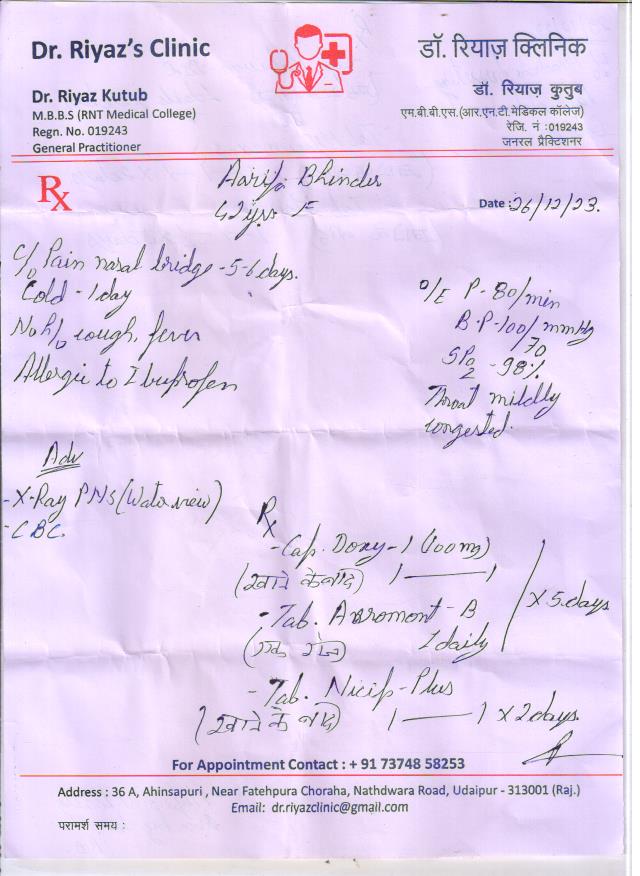 Dr. Riyaz's Clinic
डॉ. रियाज़ क्लिनिक
Dr. Riyaz Kutub
M.B.B.S (RNT Medical College)
Regn. No. 019243
General Practitioner
डॉ. रियाज़ कुतुब
एम.बी.बी.एस.(आर.एन.टी.मेडिकल कॉलेज)
रेजि. नं :019243
जनरल प्रैक्टिशनर
Rx
Bhinder
42 yrs F
Date : 26/12/23.
C/o Pain nasal bridge - 5-6 days.
Cold - 1 day
No h/o cough, fever
Allergic to Ibuprofen
O/E P - 80/min
B.P - 100/70 mmHg
SPO2 - 98%
Throat mildly
congested.
Adv
- X-Ray PNS (Water view)
- CBC.
Rx
- Cap. Doxy-1 (100mg)
(खाने के बाद) 1 —— 1
- Tab. - B
(एक रोज) 1 daily
x 5 days
- Tab. Nicip-Plus
(खाने के बाद) 1 —— 1 x 2 days.
For Appointment Contact : + 91 73748 58253
Address : 36 A, Ahinsapuri , Near Fatehpura Choraha, Nathdwara Road, Udaipur - 313001 (Raj.)
Email: dr.riyazclinic@gmail.com
परामर्श समय :